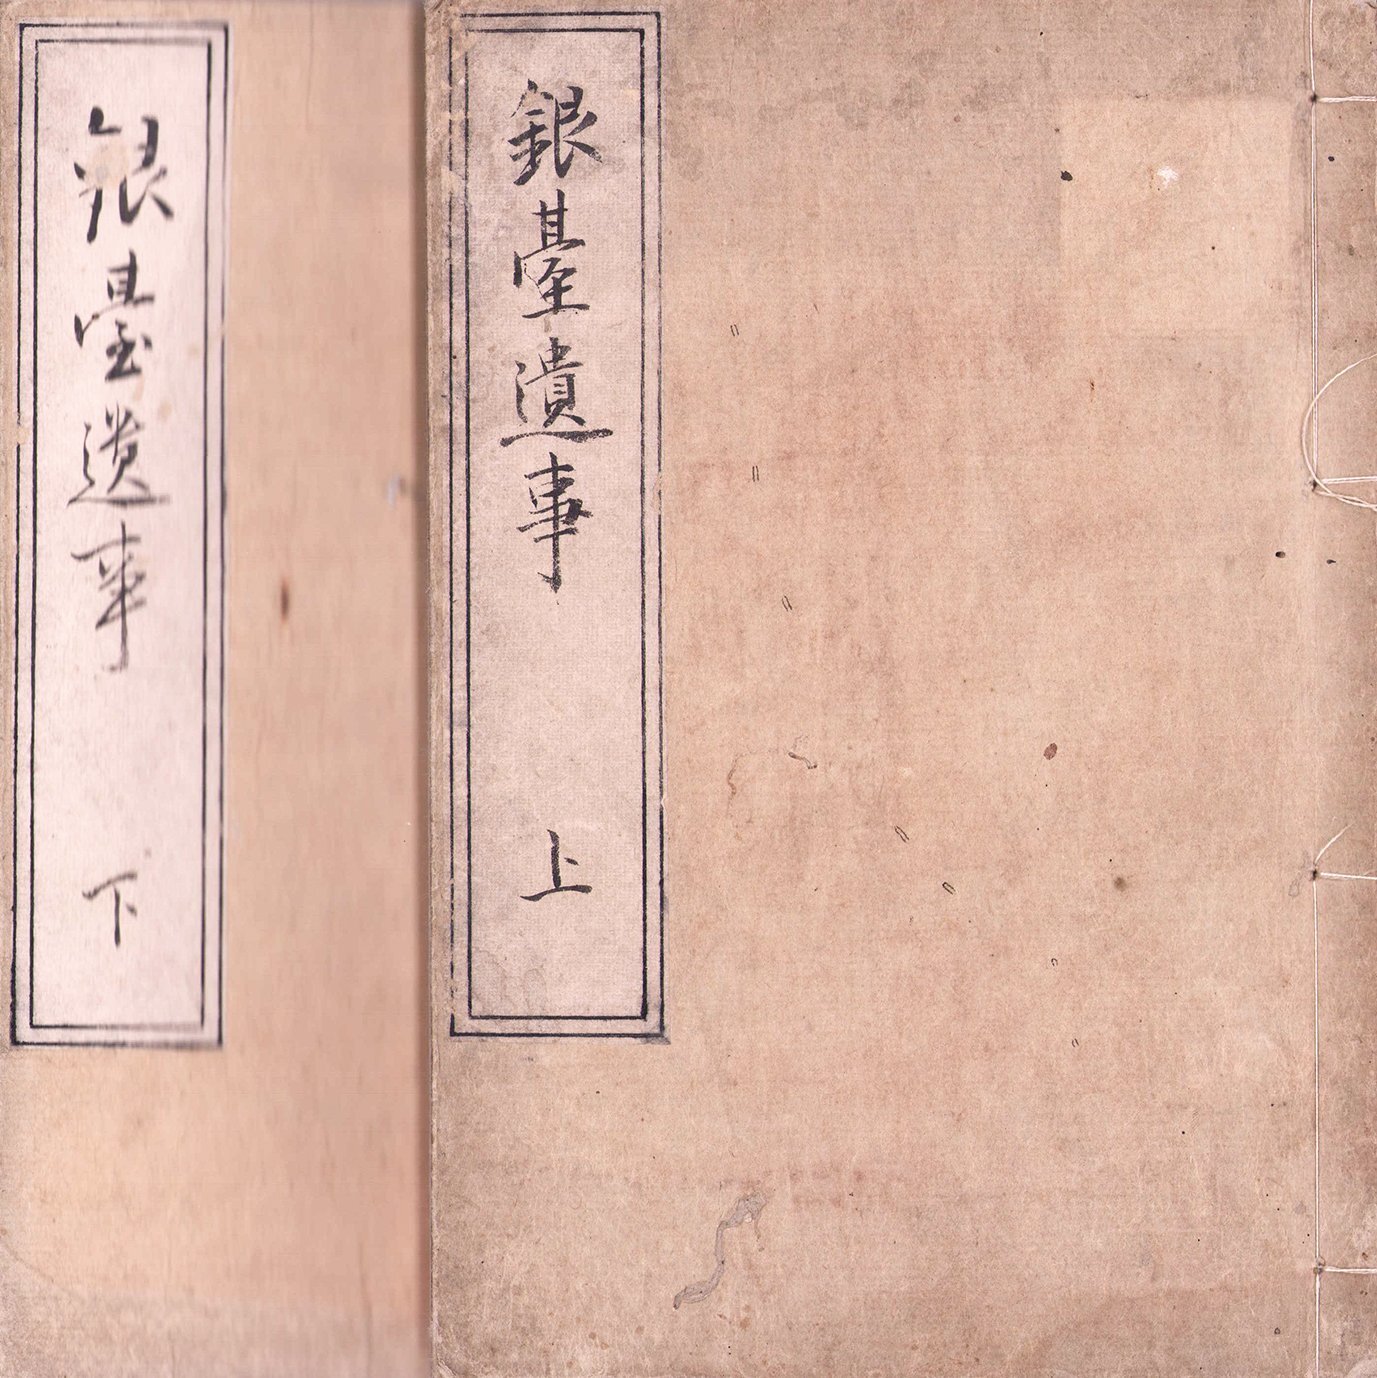 銀臺遺事 上
銀臺遺事 下